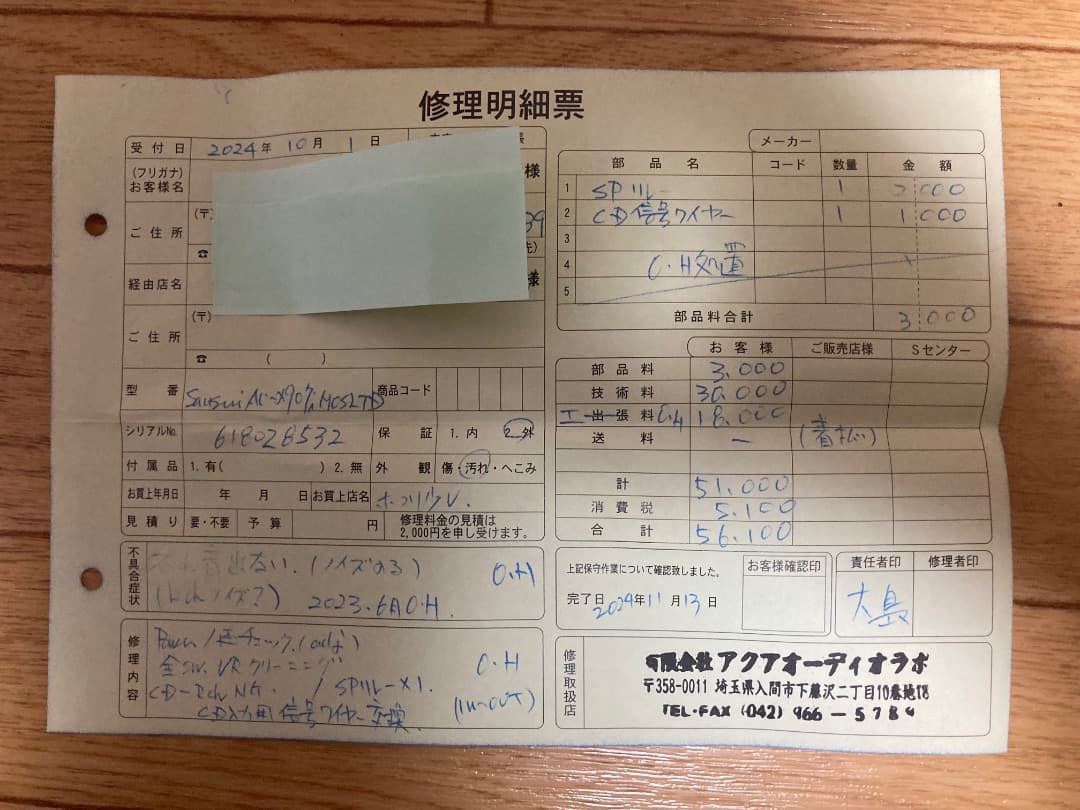 修理明細票
受付日 2024年 10月 1日
(フリガナ)
お客様名 様
(〒
ご住所
☎
経由店名 様
(〒)
ご住所
☎ ( )
型番 Sansui 商品コード
シリアル№ 618028532 保証 1.内 2.外
付属品 1.有( ) 2.無 外観 傷・汚れ・へこみ
お買上年月日 年 月 日 お買上店名
見積り 要・不要 予算 円 修理料金の見積は
2,000円を申し受けます。
不具合症状 音出ない.(ノイズのる) O.H
2023.6月O.H.
修理内容
全SW. VRクリーニング O.H
SPリレー×1. (IN-OUT)
CD入力用信号ワイヤー交換
メーカー
部品名 コード 数量 金額
1 SPリレー 1 2000
2 CD信号ワイヤー 1 1000
3
4 O.H処置
5
部品料合計 3,000
お客様 ご販売店様 Sセンター
部品料 3,000
技術料 30,000
出張料 O.H 18,000
送料 ー (着払い)
計 51,000
消費税 5,100
合計 56,100
上記保守作業について確認致しました。
完了日 2024年11月13日
お客様確認印
責任者印 修理者印
大島
修理取扱店
有限会社アクアオーディオラボ
〒358-0011 埼玉県入間市下藤沢二丁目10番地18
TEL・FAX (042) 966-5784